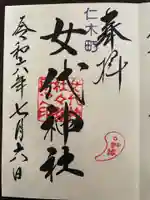 奉拝
仁木野
女代神社
令和六年七月六日